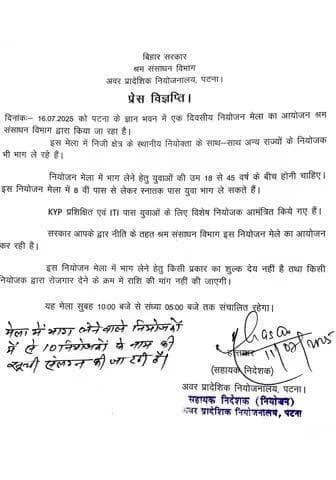 बिहार सरकार
श्रम संसाधन विभाग
अवर प्रादेशिक नियोजनालय, पटना।
प्रेस विज्ञप्ति।
दिनांकः– 16.07.2025 को पटना के ज्ञान भवन में एक दिवसीय नियोजन मेला का आयोजन श्रम
संसाधन विभाग द्वारा किया जा रहा है।
इस मेला में निजी क्षेत्र के स्थानीय नियोक्ता के साथ–साथ अन्य राज्यों के नियोजक
भी भाग ले रहे हैं।
नियोजन मेला में भाग लेने हेतु युवाओं की उम 18 से 45 वर्ष के बीच होनी चाहिए।
इस नियोजन मेला में 8 वी पास से लेकर स्नातक पास युवा भाग ले सकते हैं।
KYP प्रशिक्षित एवं ITI पास युवाओं के लिए विशेष नियोजक आमंत्रित किये गए हैं।
सरकार आपके द्वार नीति के तहत श्रम संसाधन विभाग इस नियोजन मेले का आयोजन
कर रही है।
इस नियोजन मेला में भाग लेने हेतु किसी प्रकार का शुल्क देय नहीं है तथा किसी
नियोजक द्वारा रोजगार देने के क्रम में राशि की मांग नहीं की जाएगी।
यह मेला सुबह 10:00 बजे से संध्या 05:00 बजे तक संचालित रहेगा।
मेला में भाग लेने वाले नियोजकों
में से 10 नियोजकों के नाम की
सूची संलग्न की जा रही है।
(सहायक निदेशक)
अवर प्रादेशिक नियोजनालय, पटना।
सहायक निदेशक (नियोजन)
अवर प्रादेशिक नियोजनालय, पटना